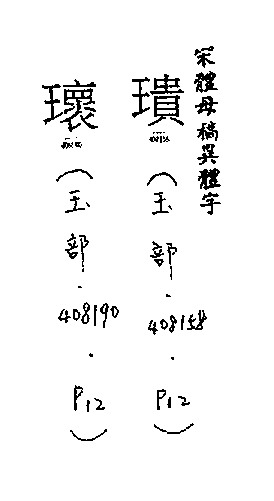 宋體母稿異體字
璝（玉部．408158．P12）
瓌（玉部．408190．P12）